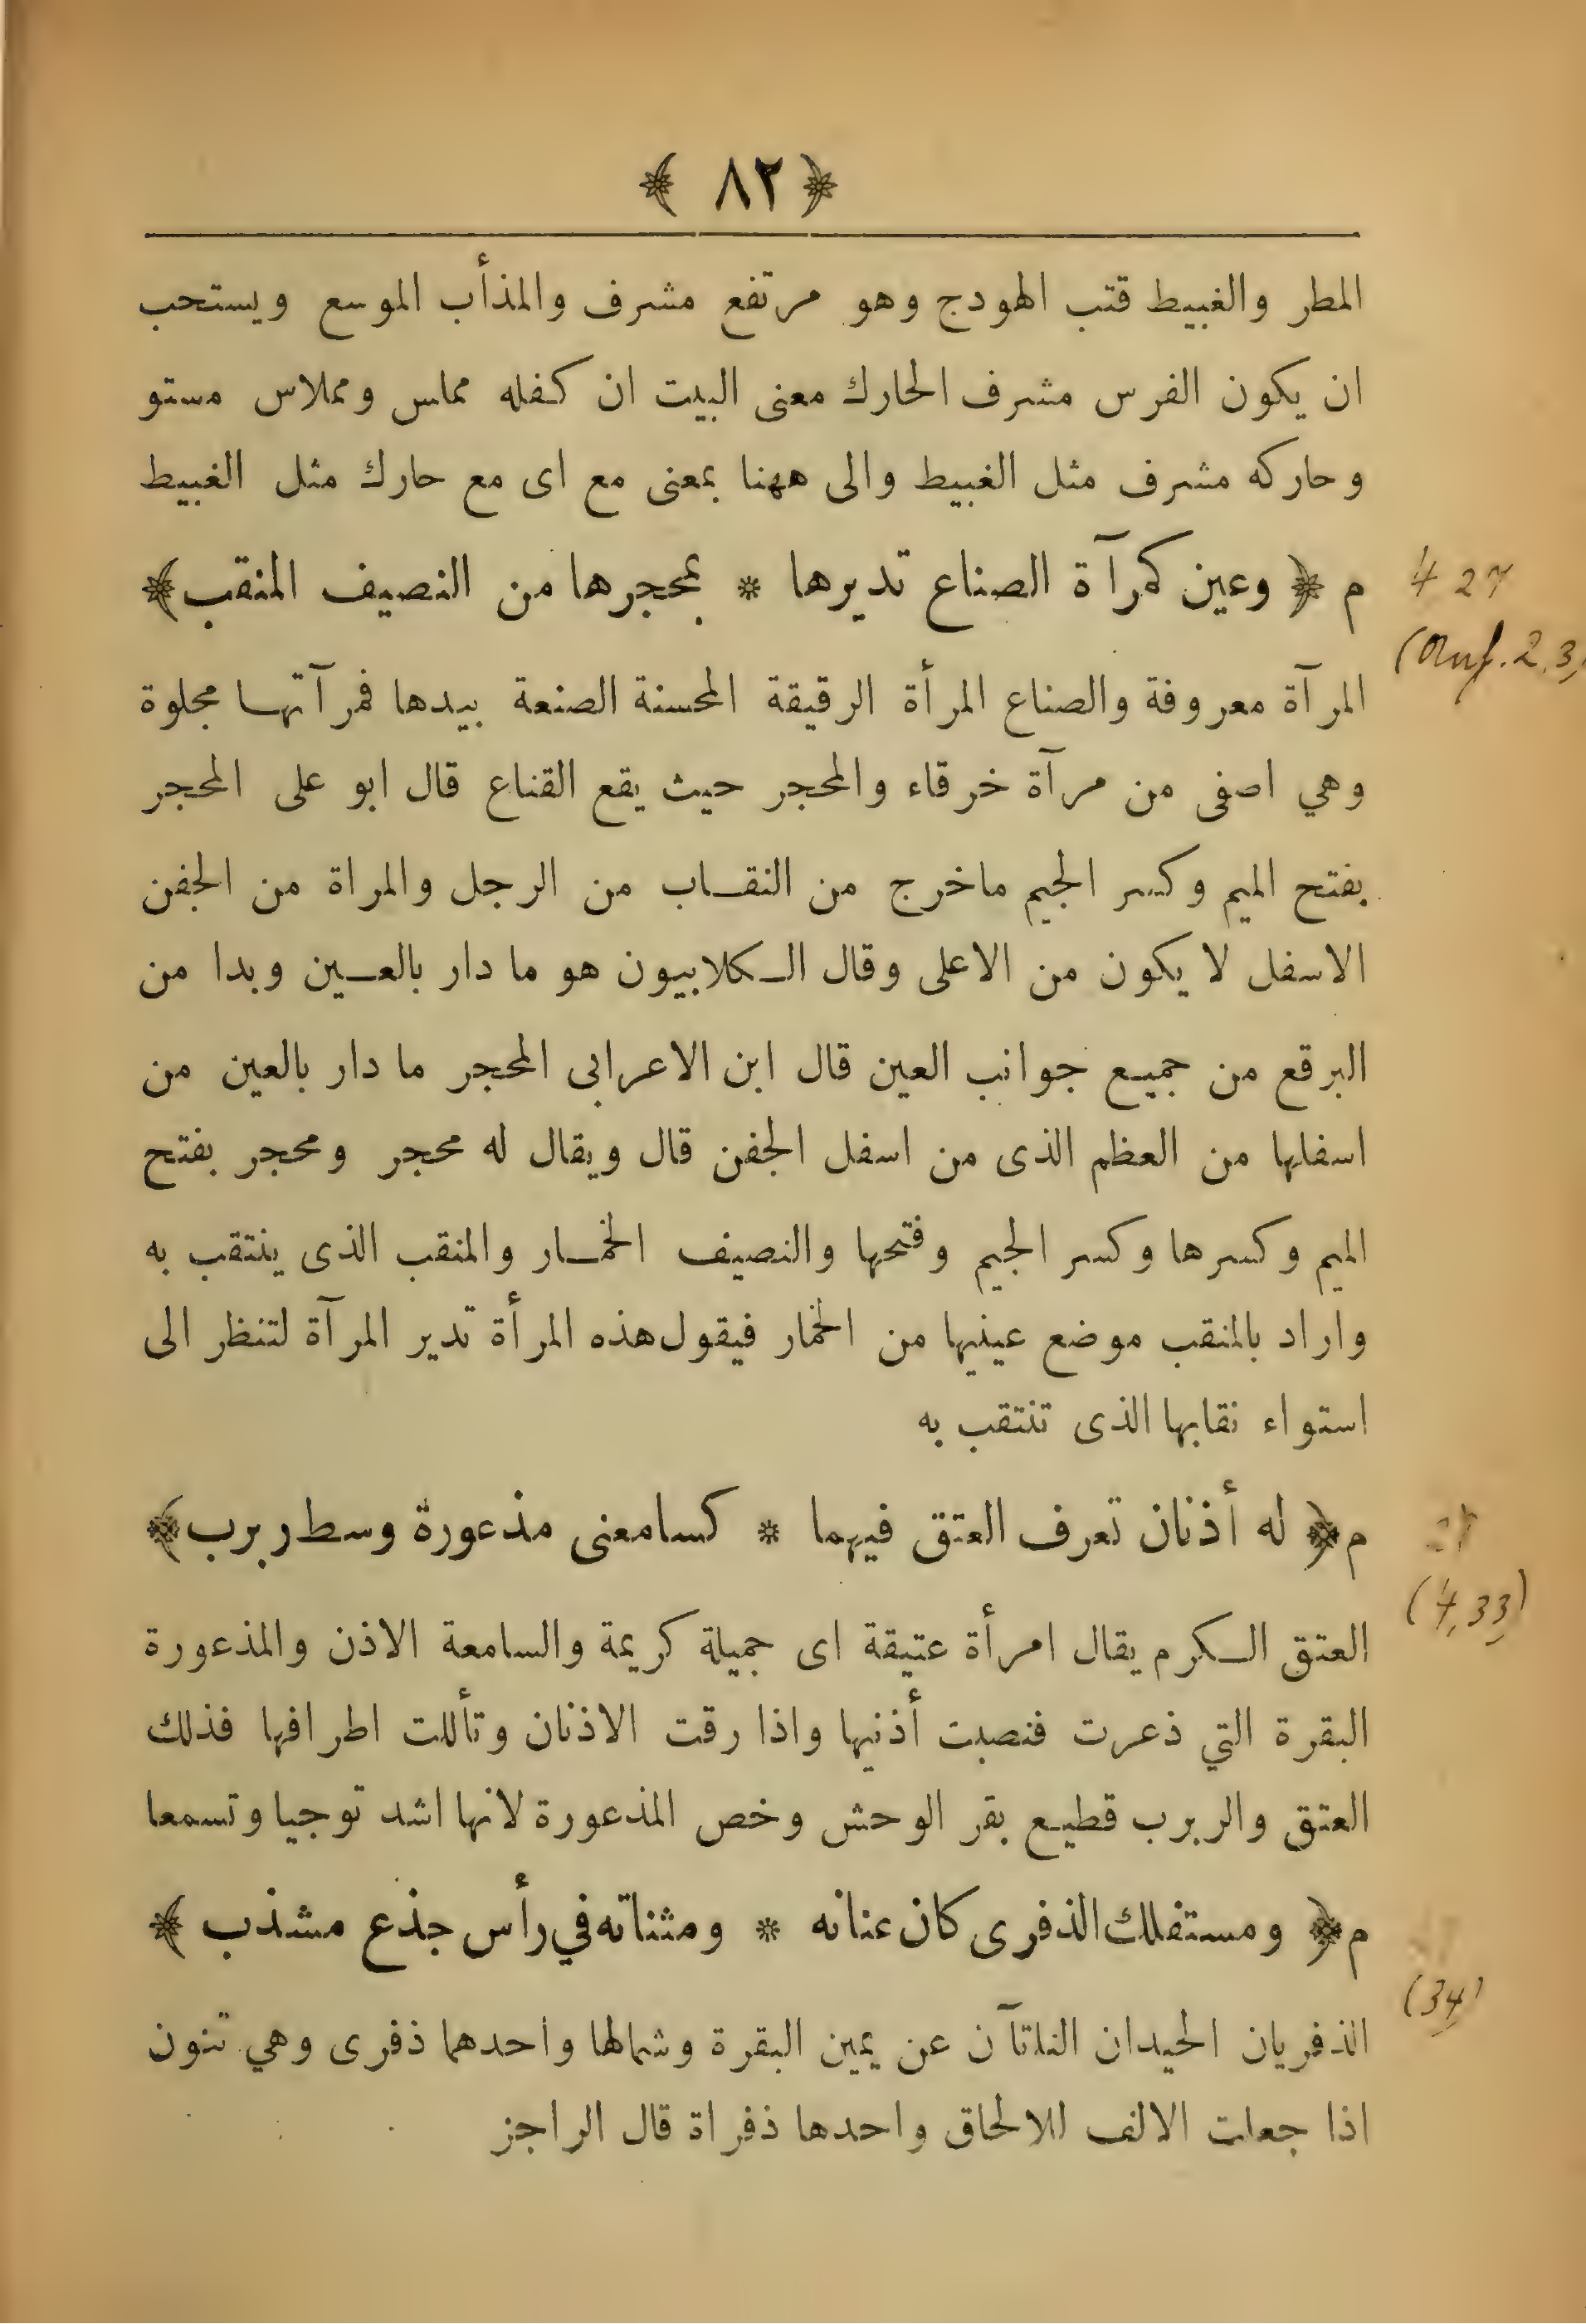 ﴿ ٨٢ ﴾
المطر والغبيط قتب الهودج وهو مرتفع مشرف والمذأب الموسع ويستحب
ان يكون الفرس مشرف الحارك معنى البيت ان كفله مماس ومملاس مستو
وحاركه مشرف مثل الغبيط والى ههنا بمعنى مع اى مع حارك مثل الغبيط
م ﴿ وعين كمرآة الصناع تديرها * بمحجرها من النصيف المنقب ﴾
4 27
(Anf. 2,3)
المرآة معروفة والصناع المرأة الرقيقة المحسنة الصنعة بيدها فمرآتها مجلوة
وهي اصفى من مرآة خرقاء والمحجر حيث يقع القناع قال ابو على المحجر
بفتح الميم وكسر الجيم ماخرج من النقاب من الرجل والمراة من الجفن
الاسفل لا يكون من الاعلى وقال الكلابيون هو ما دار بالعين وبدا من
البرقع من جميع جوانب العين قال ابن الاعرابى المحجر ما دار بالعين من
اسفلها من العظم الذى من اسفل الجفن قال ويقال له محجر ومحجر بفتح
الميم وكسرها وكسر الجيم وفتحها والنصيف الخمار والمنقب الذى ينتقب به
واراد بالمنقب موضع عينيها من الخمار فيقول هذه المرأة تدير المرآة لتنظر الى
استواء نقابها الذى تنتقب به
م ﴿ له أذنان تعرف العتق فيهما * كسامعنى مذعورة وسط ربرب ﴾
(4, 33)
العتق الكرم يقال امرأة عتيقة اى جميلة كريمة والسامعة الاذن والمذعورة
البقرة التي ذعرت فنصبت أذنيها واذا رقت الاذنان وتأللت اطرافها فذلك
العتق والربرب قطيع بقر الوحش وخص المذعورة لانها اشد توجيا وتسمعا
م ﴿ ومستفلك الذفرى كان عنانه * ومثناته في رأس جذع مشذب ﴾
(34)
الذفريان الحيدان الناتآن عن يمين البقرة وشمالها واحدهما ذفرى وهي تنون
اذا جعلت الالف للالحاق واحدها ذفراة قال الراجز